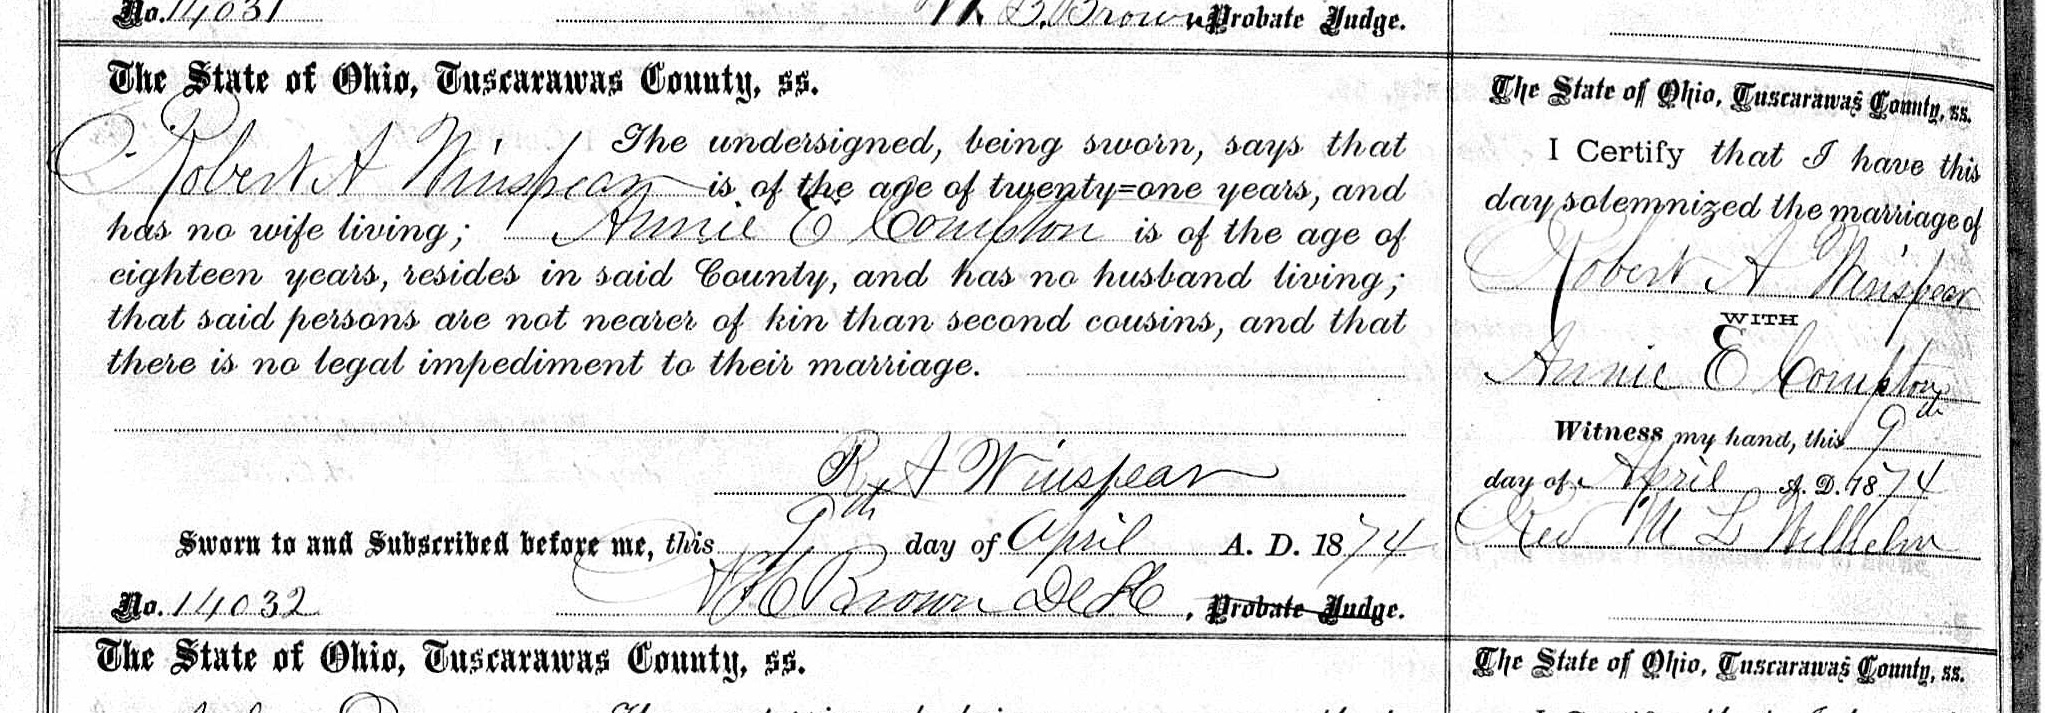 No. 14031 Brown, Probate Judge.
The State of Ohio, Tuscarawas County, ss.
The undersigned, being sworn, says that
Robert A Winspear is of the age of twenty=one years, and
has no wife living; Annie E Compton is of the age of
eighteen years, resides in said County, and has no husband living;
that said persons are not nearer of kin than second cousins, and that
there is no legal impediment to their marriage.
R A Winspear
Sworn to and Subscribed before me, this 9th day of April A. D. 1874
No. 14032 Brown , Probate Judge.
The State of Ohio, Tuscarawas County, ss.
The State of Ohio, Tuscarawas County, ss.
I Certify that I have this
day solemnized the marriage of
Robert A Winspear
WITH
Annie E Compton
Witness my hand, this 9th
day of April A. D. 1874
Rev M L Wilhelm
The State of Ohio, Tuscarawas County, ss.